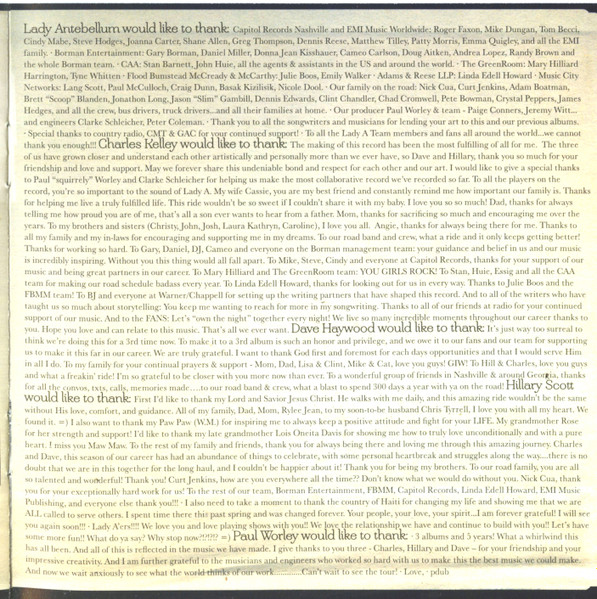 Lady Antebellum would like to thank: Capitol Records Nashville and EMI Music Worldwide: Roger Faxon, Mike Dungan, Tom Becci,
Cindy Mabe, Steve Hodges, Joanna Carter, Shane Allen, Greg Thompson, Dennis Reese, Matthew Tilley, Patty Morris, Emma Quigley, and all the EMI
family. · Borman Entertainment: Gary Borman, Daniel Miller, Donna Jean Kisshauer, Cameo Carlson, Doug Aitken, Andrea Lopez, Randy Brown and
the whole Borman team. · CAA: Stan Barnett, John Huie, all the agents & assistants in the US and around the world. · The GreenRoom: Mary Hilliard
Harrington, Tyne Whitten · Flood Bumstead McCready & McCarthy: Julie Boos, Emily Walker · Adams & Reese LLP: Linda Edell Howard · Music City
Networks: Lang Scott, Paul McCulloch, Craig Dunn, Basak Kizilisik, Nicole Dool. · Our family on the road: Nick Cua, Kurt Jenkins, Adam Boatman,
Brett "Scoop" Blanden, Jonathon Long, Jason "Slim" Gambill, Dennis Edwards, Clint Chandler, Chad Cromwell, Pete Bowman, Crystal Peppers, James
Hedges, and all the crew, bus drivers, truck drivers...and all their families at home. · Our producer Paul Worley & team · Paige Conners, Jeremy Witt...
and engineers Clarke Schleicher, Peter Coleman. · Thank you to all the songwriters and musicians for lending your art to this and our previous albums.
· Special thanks to country radio, CMT & GAC for your continued support! · To all the Lady A Team members and fans all around the world...we cannot
thank you enough!!! Charles Kelley would like to thank: The making of this record has been the most fulfilling of all for me. The three
of us have grown closer and understand each other artistically and personally more than we ever have, so Dave and Hillary, thank you so much for your
friendship and love and support. May we forever share this undeniable bond and respect for each other and our art. I would like to give a special thanks
to Paul "squirrely" Worley and Clarke Schleicher for helping us make the most collaborative record we've recorded so far. To all the players on the
record, you're so important to the sound of Lady A. My wife Cassie, you are my best friend and constantly remind me how important our family is. Thanks
for helping me live a truly fulfilled life. This ride wouldn't be so sweet if I couldn't share it with my baby. I love you so so much! Dad, thanks for always
telling me how proud you are of me, that's all a son ever wants to hear from a father. Mom, thanks for sacrificing so much and encouraging me over the
years. To my brothers and sisters (Christy, John, Josh, Laura Kathryn, Caroline), I love you all. Angie, thanks for always being there for me. Thanks to
all my family and my in-laws for encouraging and supporting me in my dreams. To our road band and crew, what a ride and it only keeps getting better!
Thanks for working so hard. To Gary, Daniel, DJ, Cameo and everyone on the Borman management team: your guidance and belief in us and our music
is incredibly inspiring. Without you this thing would all fall apart. To Mike, Steve, Cindy and everyone at Capitol Records, thanks for your support of our
music and being great partners in our career. To Mary Hilliard and The GreenRoom team: YOU GIRLS ROCK! To Stan, Huie, Essig and all the CAA
team for making our road schedule badass every year. To Linda Edell Howard, thanks for looking out for us in every way. Thanks to Julie Boos and the
FBMM team! To BJ and everyone at Warner/Chappell for setting up the writing partners that have shaped this record. And to all of the writers who have
taught us so much about storytelling: You keep me wanting to reach for more in my songwriting. Thanks to all of our friends at radio for your continued
support of our music. And to the FANS: Let's "own the night" together every night! We live so many incredible moments throughout our career thanks to
you. Hope you love and can relate to this music. That's all we ever want. Dave Haywood would like to thank: It's just way too surreal to
think we're doing this for a 3rd time now. To make it to a 3rd album is such an honor and privilege, and we owe it to our fans and our team for supporting
us to make it this far in our career. We are truly grateful. I want to thank God first and foremost for each days opportunities and that I would serve Him
in all I do. To my family for your continual prayers & support - Mom, Dad, Lisa & Clint, Mike & Cat, love you guys! GIW! To Hill & Charles, love you guys
and what a freakin' ride! I'm so grateful to be closer with you more now than ever. To a wonderful group of friends in Nashville & around Georgia, thanks
for all the convos, txts, calls, memories made....to our road band & crew, what a blast to spend 300 days a year with ya on the road! Hillary Scott
would like to thank: First I'd like to thank my Lord and Savior Jesus Christ. He walks with me daily, and this amazing ride wouldn't be the same
without His love, comfort, and guidance. All of my family, Dad, Mom, Rylee Jean, to my soon-to-be husband Chris Tyrrell, I love you with all my heart. We
found it. =) I also want to thank my Paw Paw (W.M.) for inspiring me to always keep a positive attitude and fight for your LIFE. My grandmother Rose
for her strength and support! I'd like to thank my late grandmother Lois Oneita Davis for showing me how to truly love unconditionally and with a pure
heart. I miss you Maw Maw. To the rest of my family and friends, thank you for always being there and loving me through this amazing journey. Charles
and Dave, this season of our career has had an abundance of things to celebrate, with some personal heartbreak and struggles along the way....there is no
doubt that we are in this together for the long haul, and I couldn't be happier about it! Thank you for being my brothers. To our road family, you are all
so talented and wonderful! Thank you! Curt Jenkins, how are you everywhere all the time?? Don't know what we would do without you. Nick Cua, thank
you for your exceptionally hard work for us! To the rest of our team, Borman Entertainment, FBMM, Capitol Records, Linda Edell Howard, EMI Music
Publishing, and everyone else thank you!!! · I also need to take a moment to thank the country of Haiti for changing my life and showing me that we are
ALL called to serve others. I spent time there this past spring and was changed forever. Your people, your love, your spirit...I am forever grateful! I will see
you again soon!!! · Lady A'ers!!!! We love you and love playing shows with you!! We love the relationship we have and continue to build with you!! Let's have
some more fun!! What do ya say? Why stop now?!?!?! =) Paul Worley would like to thank: · 3 albums and 5 years! What a whirlwind this
has all been. And all of this is reflected in the music we have made. I give thanks to you three - Charles, Hillary and Dave – for your friendship and your
impressive creativity. And I am further grateful to the musicians and engineers who worked so hard with us to make this the best music we could make.
And now we wait anxiously to see what the world thinks of our work............Can't wait to see the tour! · Love, · pdub